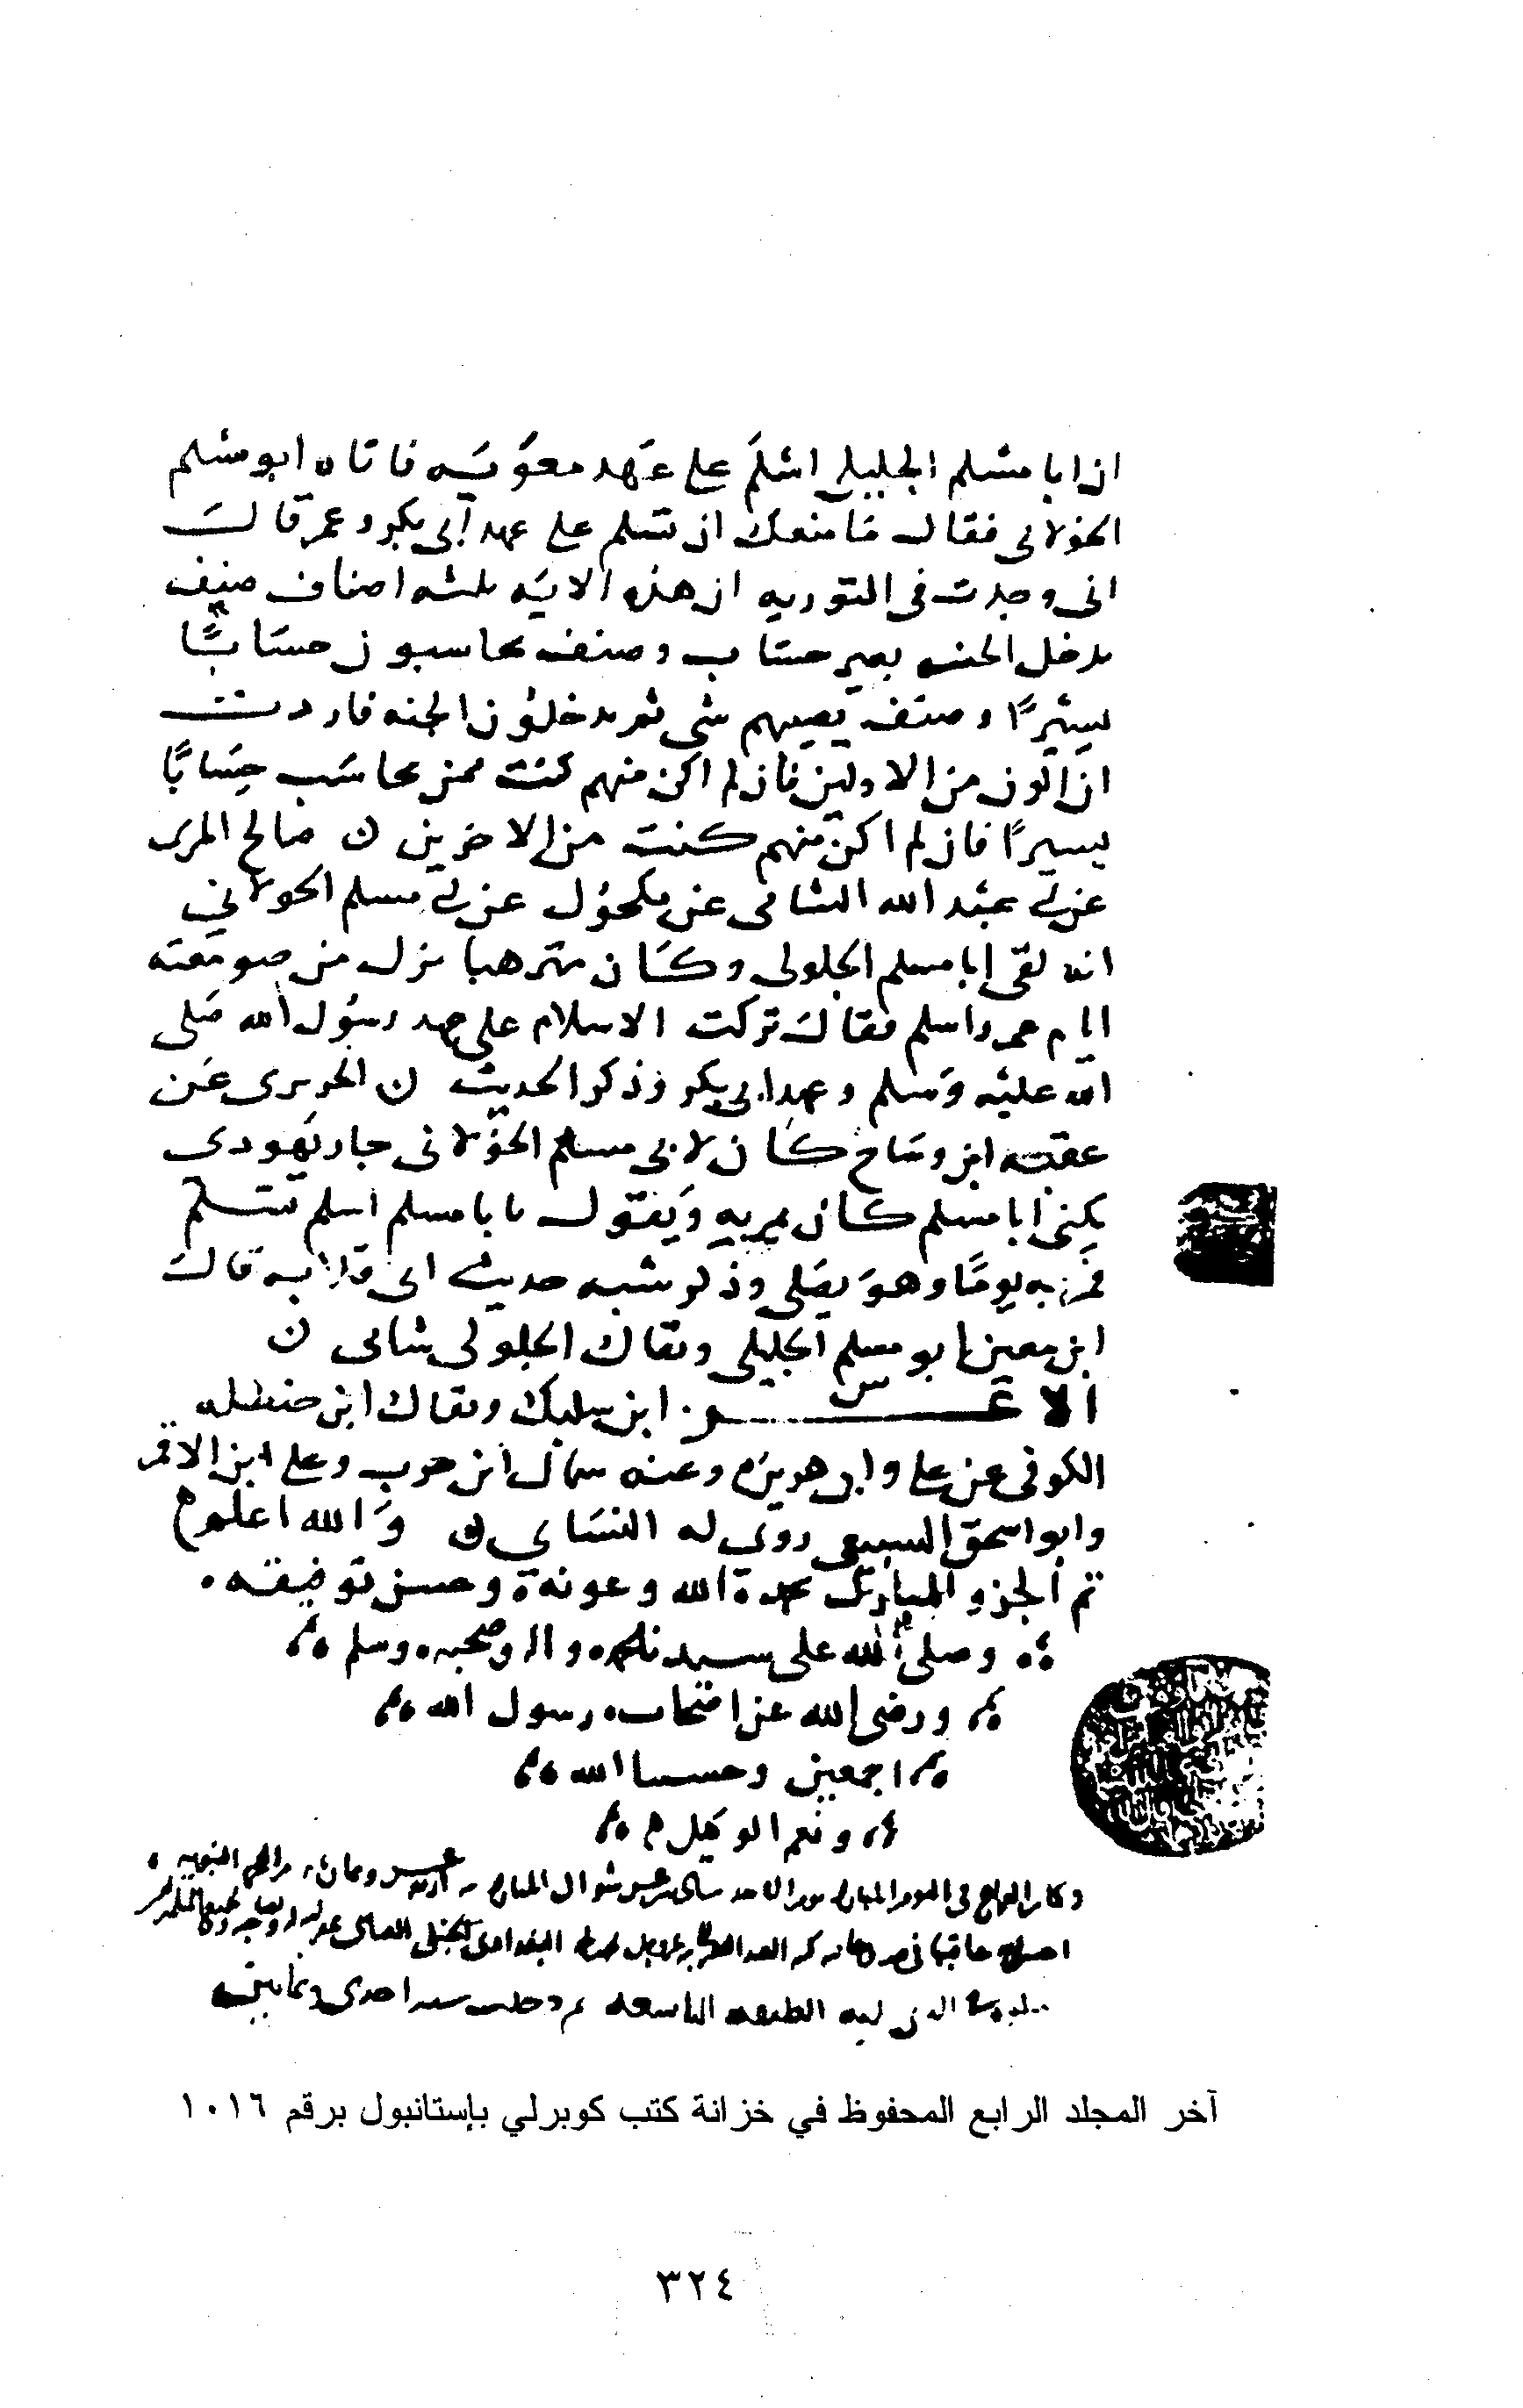 ان ابا مسلم الجليلي اسلم على عهد معويه فاتاه ابو مسلم
الخولاني فقال ما منعك ان تسلم على عهد ابي بكر وعمر قال
اني وجدت في التوريه ان هذه الامه ثلثه اصناف صنف
يدخل الجنه بغير حساب وصنف يحاسبون حسابا
يسيرا وصنف يصيبهم شي ثم يدخلون الجنه فاردت
ان اكون من الاولين فان لم اكن منهم كنت ممن يحاسب حسابا
يسيرا فان لم اكن منهم كنت من الاخرين ن صالح المري
عن ابي عبد الله الشامي عن مكحول عن ابي مسلم الخولاني
انه لقي ابا مسلم الجلولي وكان مترهبا نزل من صومعته
ايام عمر واسلم فقال تركت الاسلام على عهد رسول الله صلى
الله عليه وسلم وعهد ابي بكر وذكر الحديث ن الجريري عن
عقبه ابن وساح كان لابي مسلم الخولاني جار يهودي
يكنى ابا مسلم كان يمر به ويقول يابا مسلم اسلم تسلم
فمر به يوما وهو يصلي وذكر شبه حديث ابي قلابه قال
ابن معين ابو مسلم الجليلي ويقال الجلولي شامي ن
الاغر ابن سليك ويقال ابن حنظله
الكوفي عن علي وابي هريره وعنه سماك ابن حرب وعلي ابن الاقمر
وابو اسحق السبيعي روى له النساي ن والله اعلم
تم الجزو المبارك بحمد الله وعونه وحسن توفيقه
وصلى الله على سيدنا محمد واله وصحبه وسلم
ورضي الله عن اصحاب رسول الله
اجمعين وحسبنا الله
ونعم الوكيل
وكان الفراغ في اليوم المبارك يوم الاحد شوال المبارك
البغدادي الحنبلي
الطبعه التاسعه احدى وثمانين
آخر المجلد الرابع المحفوظ في خزانة كتب كوبرلي بإستانبول برقم ١٠١٦
٣٢٤